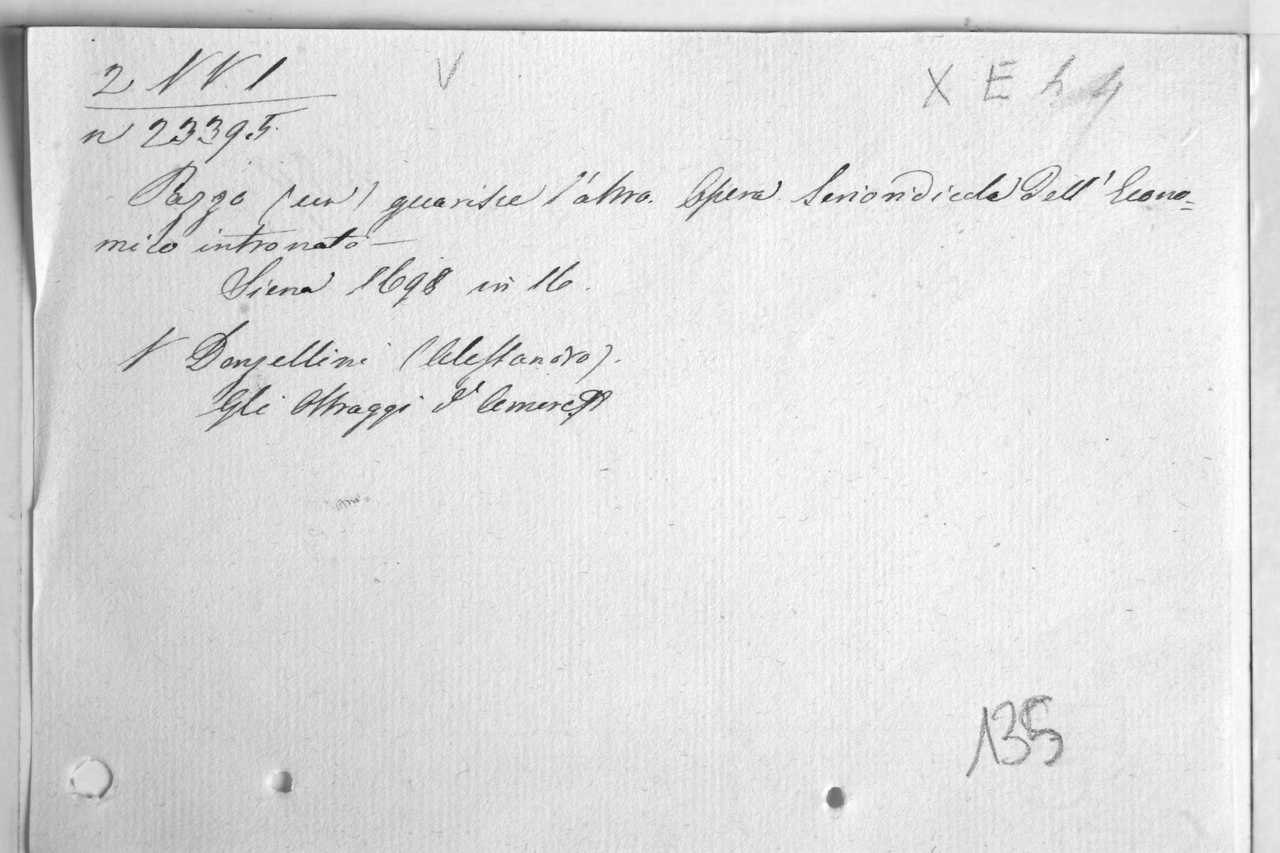 2 VV. 1 V X E h 4
n 23395.
Pazzo (un) guarisce l'altro. Opera Seriondicola Dell' Econo=
mico intronato —
Siena 1698 in 16.
V Donzellini (Alessandro).
Gli Oltraggi d' Amore
135